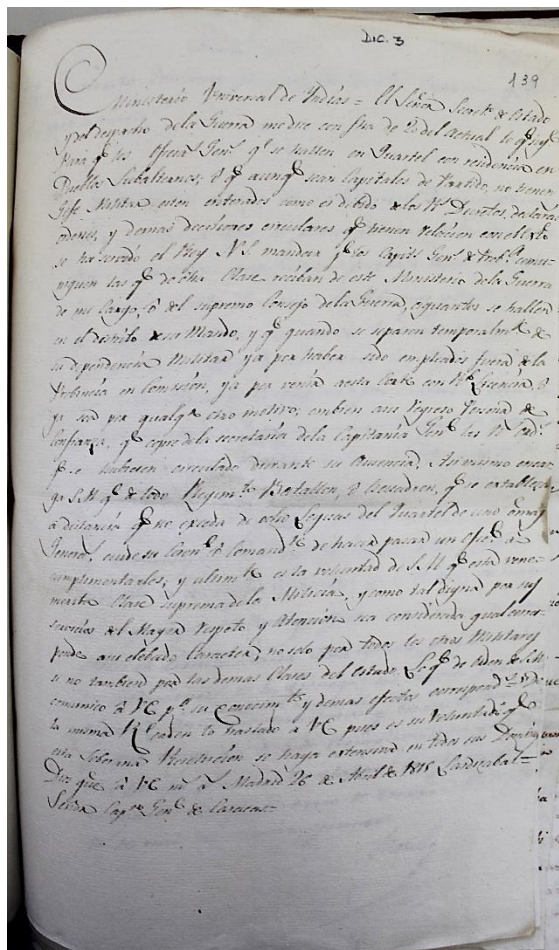 Dic. 3
139
Ministerio Universal de Indias = El Señor Secret.o de Estado
y del despacho de la Guerra me dice con fha de 20 del actual lo q.e sigue
Para q.e los Ofic.s Gen.s q.e se hallen en Quartel con residencia en
Pueblos Subalternos, ó q.e aunq.e sean Capitales de Partido, no tienen
Gefe Militar esten enterados como es debido de los R.s Decretos, declaracio
ordenes, y demas decisiones circulares q.e tienen relacion con el exto
se ha servido el Rey N. S. mandar q.e los Capit.s Gen.s de Prov.a comu
niquen las q.e de otra Clase reciban de este Ministerio de la Guerra
de mi Cargo, ó del supremo Consejo de la Guerra, a quantos se hallen
en el distrito de su Mando, y q.e quando se separen temporalm.te de
su dependencia Militar ya por haber sido empleados fuera de la
Provincia en Comision, ya por venir a esta Corte con R.l Licencia, ó
ya sea por qualq.a otro motivo, embien a su regreso Persona de
Confianza, q.e copie de la secretaría de la Capitanía Gen.l las R.s Ord.s
q.e se hubiesen circulado durante su Ausencia, Asimismo encar
ga S.M. q.e de todo Regim.to Batallon, ó Escuadron, q.e se establezca
á distancia q.e no exceda de ocho Leguas del Quartel de uno ó mas
Generales, cuide su Coron.l ó Comand.te de hacer pasar un Ofic.l á
cumplimentarles, y ultimam.te es la voluntad de S.M. q.e esta vene
merita Clase suprema de la Milicia, y como tal digna por sus
servicios del Mayor respeto y Atencion sea considerada qual corres
ponde a su elebado Caracter, no solo por todos los otros Militares
si no tambien por las demas Clases del Estado. Lo q.e de Orden de S.M.
comunico á VE p.a su conocim.to y demas efectos correspond.tes Y de
la misma R.l orden lo traslado á VE pues es su Voluntad q.e
esta Soberana Resolucion se haga extensiva en todos sus Dominios
Dios gue á VE m.s a.s Madrid 26 de Abril de 1815 Lardizabal =
Señor Cap.n Gen.l de Caracas =